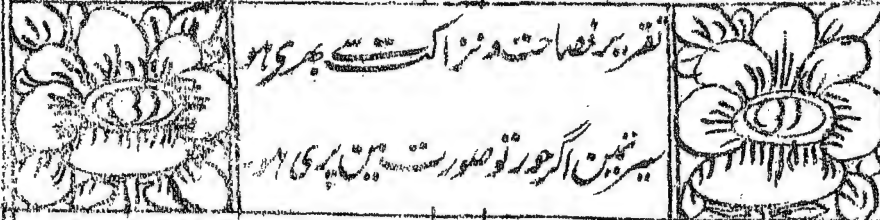 تقریر فصاحت و نزاکت سے بھری ہو
سیرتمین اگر حور تو صورت مین پری ہو